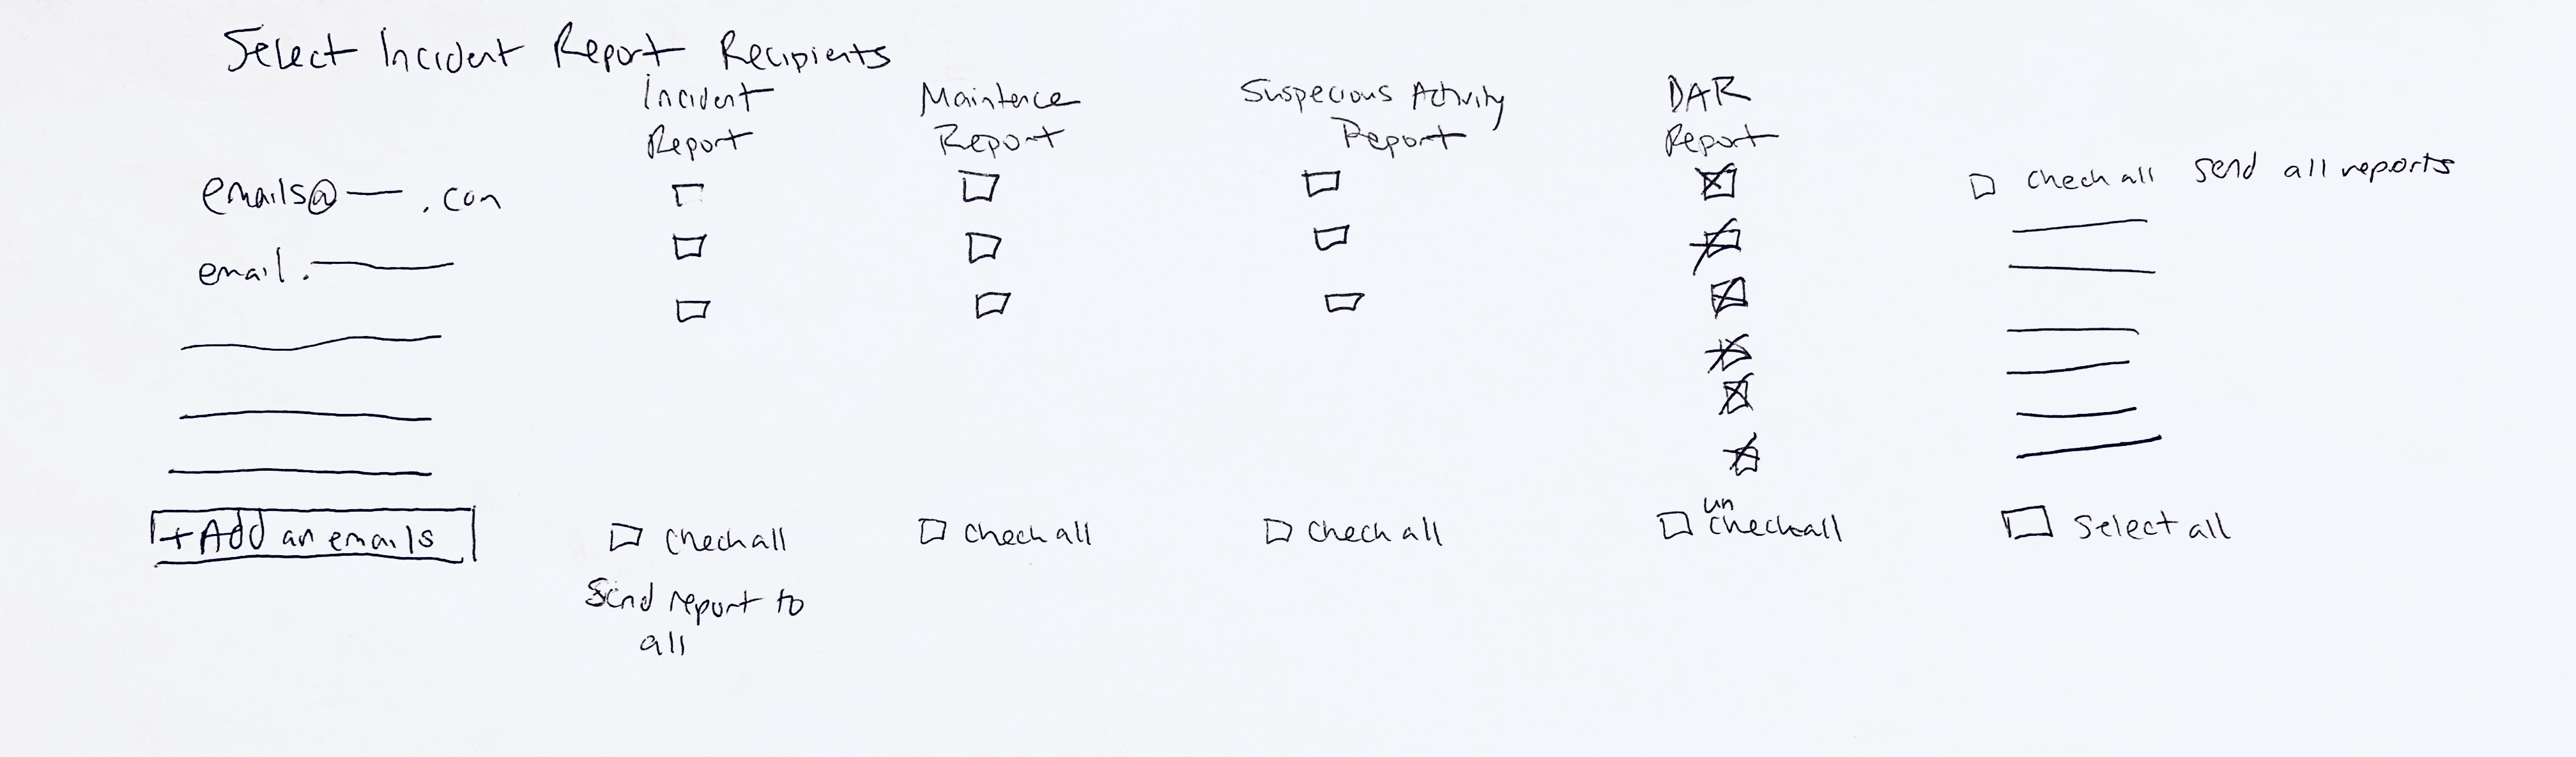 Select Incident Report Recipients
Incident Report
Maintence Report
Suspecious Activity Report
DAR Report
emails@ .con
check all send all reports
email.
+Add an emails
check all
check all
check all
un checkall
Select all
Send report to all